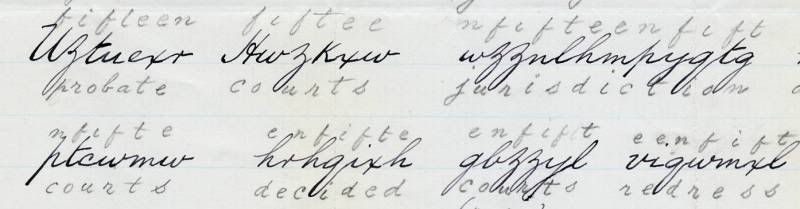 fifteen fiftee nfifteenfift
Uztuexr Hwzkxw wzznlhmpyqtg
probate courts jurisdiction
nfifte enfifte enfift eenfift
ptcwmw hrhqixh gbzzyl viqwmxl
courts decided courts redress